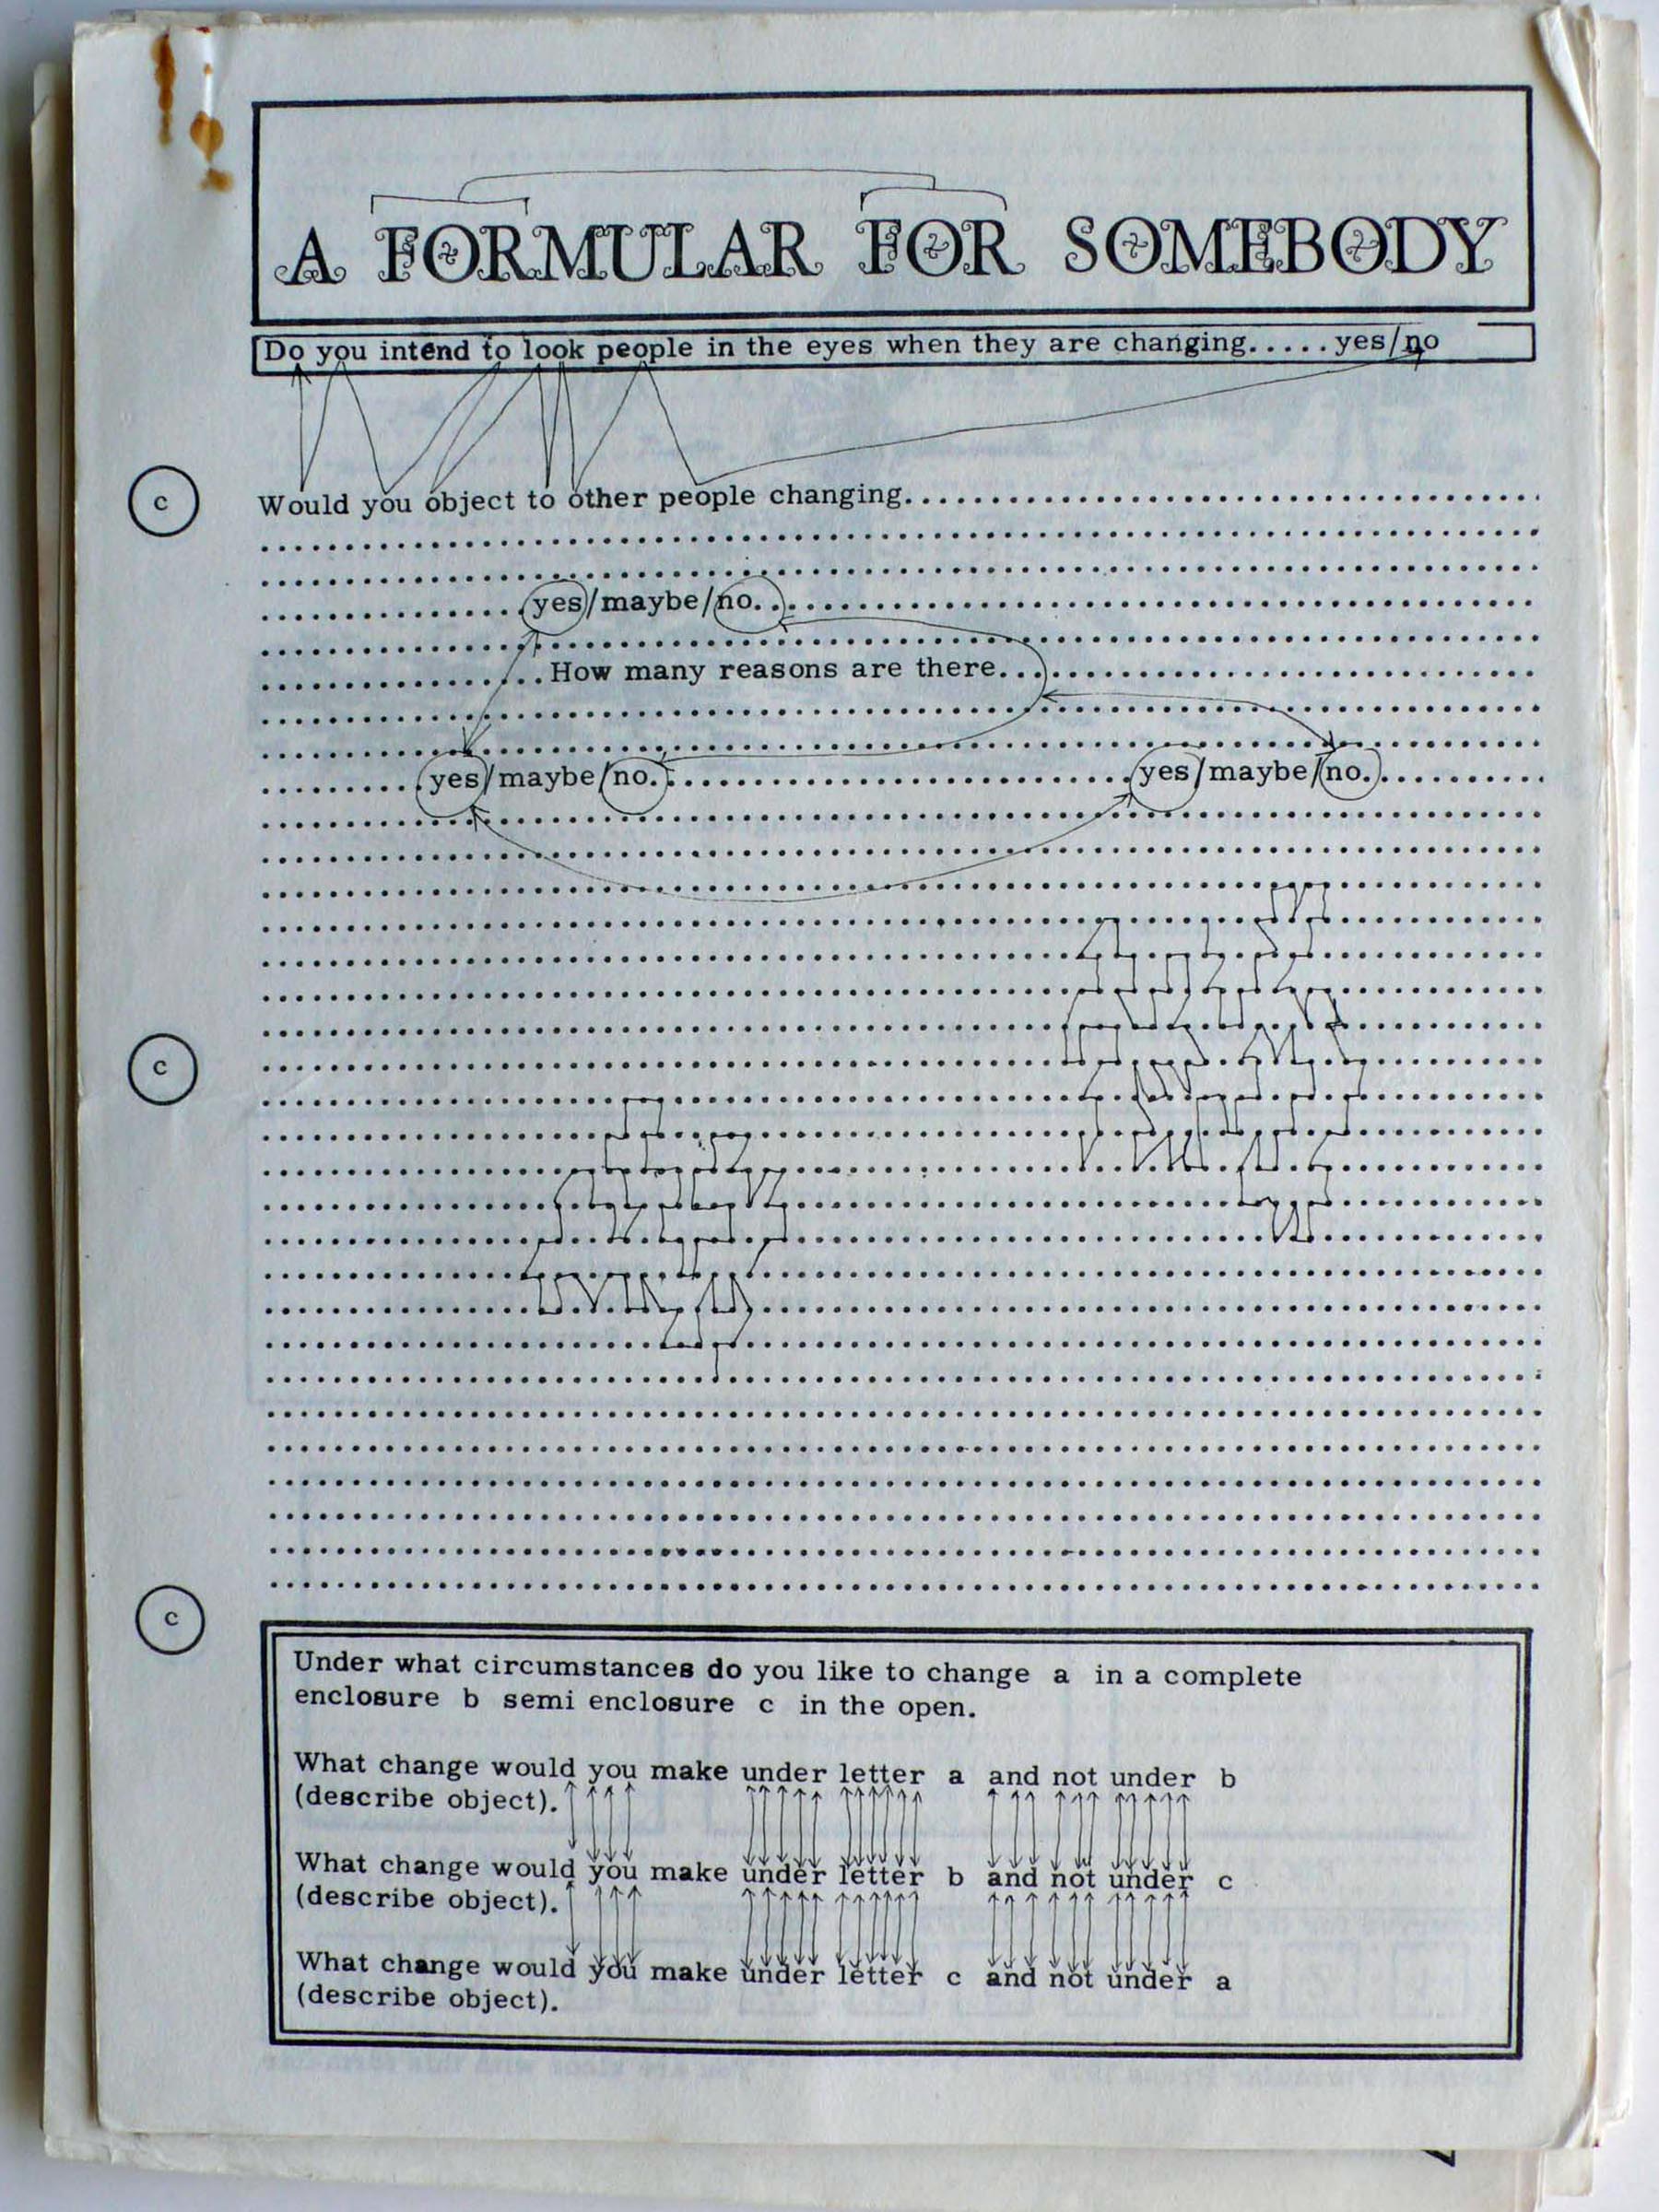 A FORMULAR FOR SOMEBODY
Do you intend to look people in the eyes when they are changing.....yes/no
c Would you object to other people changing......................................
yes/maybe/no...
...How many reasons are there...
yes/maybe/no. yes/maybe/no.
c
c
Under what circumstances do you like to change a in a complete
enclosure b semi enclosure c in the open.
What change would you make under letter a and not under b
(describe object).
What change would you make under letter b and not under c
(describe object).
What change would you make under letter c and not under a
(describe object).